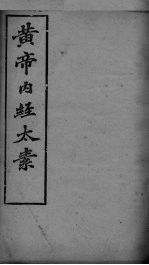 黄帝内經太素